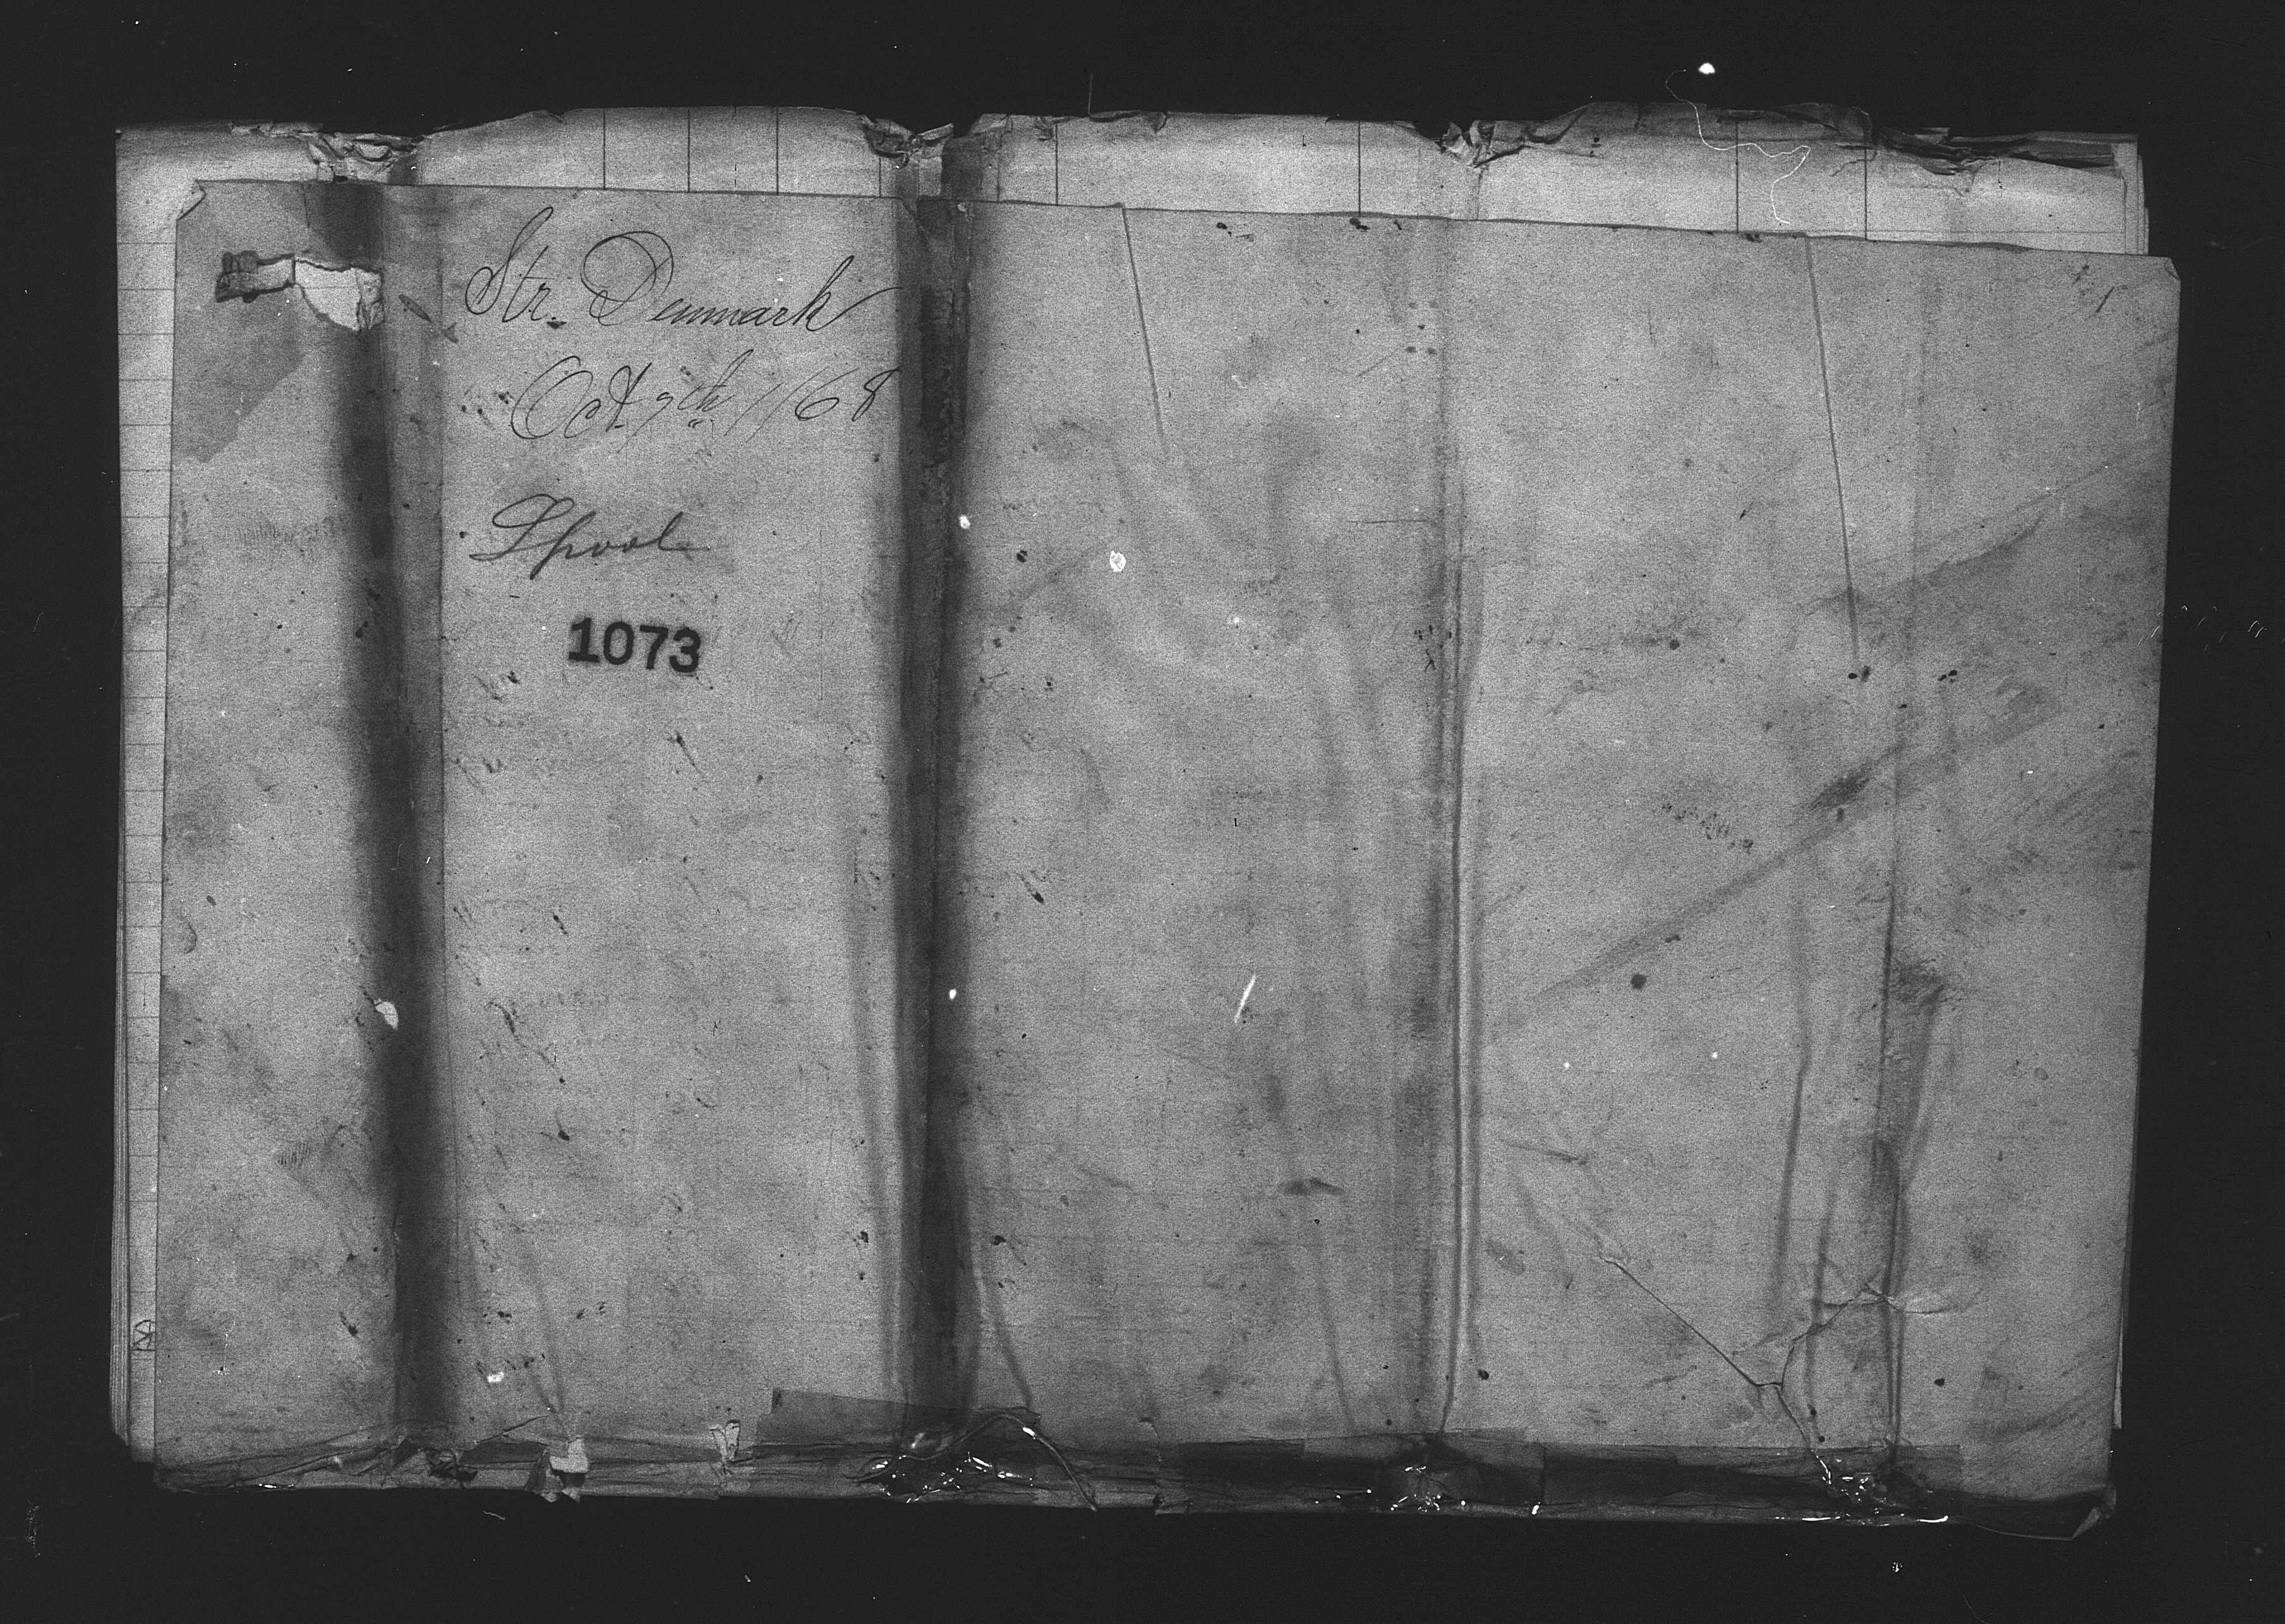 Str. Denmark
Oct. 9th 1868
Lpool
1073